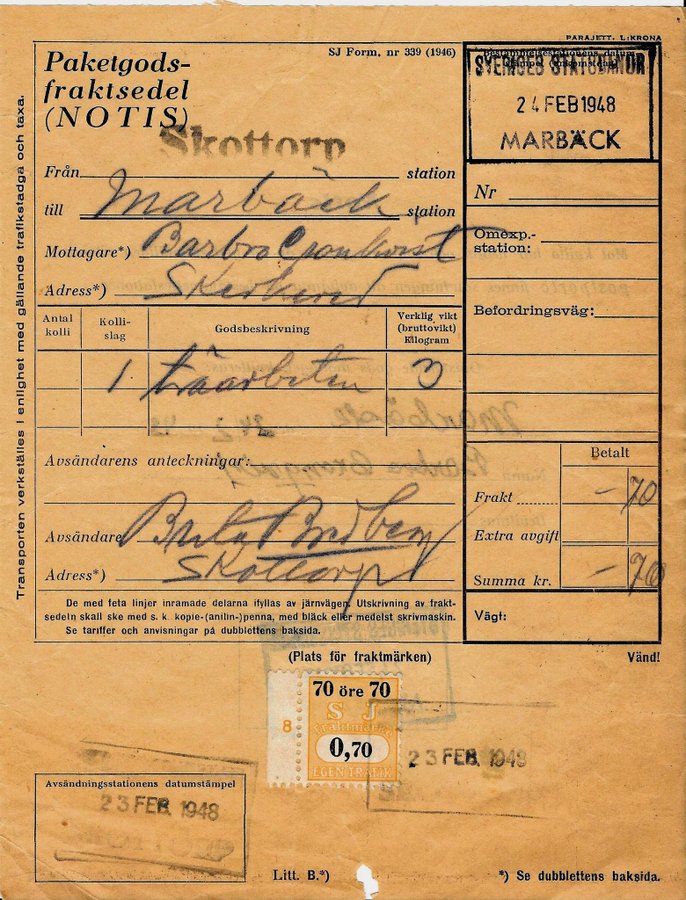 PARAJETT. L:KRONA
SJ Form. nr 339 (1946)
Paketgods-
fraktsedel
(NOTIS)
Bestämmelsestationens datum-
SVERIGES STATSBANOR
24 FEB 1948
MARBÄCK
Skottorp
Från station
till Marbäck station
Mottagare*) Barbro Cronkvist
Adress*)
Nr
Omexp.-
station:
Befordringsväg:
Antal
kolli
Kolli-
slag
Godsbeskrivning
Verklig vikt
(bruttovikt)
Kilogram
1 träarbeten 3
Avsändarens anteckningar:
Avsändare Brita
Adress*) Skottorp
Betalt
Frakt – 70
Extra avgift
Summa kr. – 70
Vägt:
De med feta linjer inramade delarna ifyllas av järnvägen. Utskrivning av frakt-
sedeln skall ske med s. k. kopie-(anilin-)penna, med bläck eller medelst skrivmaskin.
Se tariffer och anvisningar på dubblettens baksida.
Transporten verkställes i enlighet med gällande trafikstadga och taxa.
(Plats för fraktmärken)
Vänd!
70 öre 70
S J
Fraktmärke
0,70
EGEN TRAFIK
8
23 FEB. 1948
Avsändningsstationens datumstämpel
23 FEB. 1948
Litt. B.*)
*) Se dubblettens baksida.